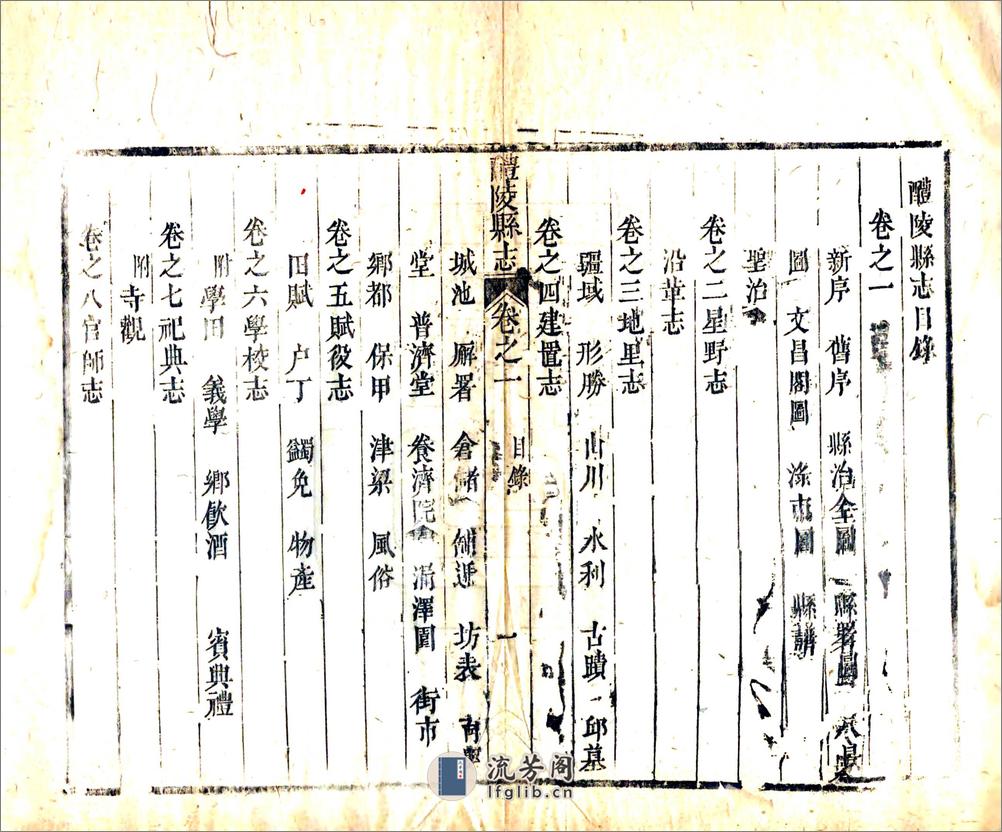 醴陵縣志目錄
卷之一
新序 舊序 縣治全圖 縣署圖 八景
圖 文昌閣圖 縣
聖治
卷之二星野志
沿革志
卷之三地里志
疆域 形勝 山川 水利 古蹟 邱墓
卷之四建置志
醴陵縣志 卷之一 目錄 一
城池 廨署 倉儲 舖遞 坊表
堂 普濟堂 養濟院 漏澤園 街市
鄉都 保甲 津梁 風俗
卷之五賦役志
田賦 户丁 蠲免 物產
卷之六學校志
附學田 義學 鄉飲酒 賓興禮
卷之七祀典志
附寺觀
卷之八官師志
流芳阁
lfglib.cn